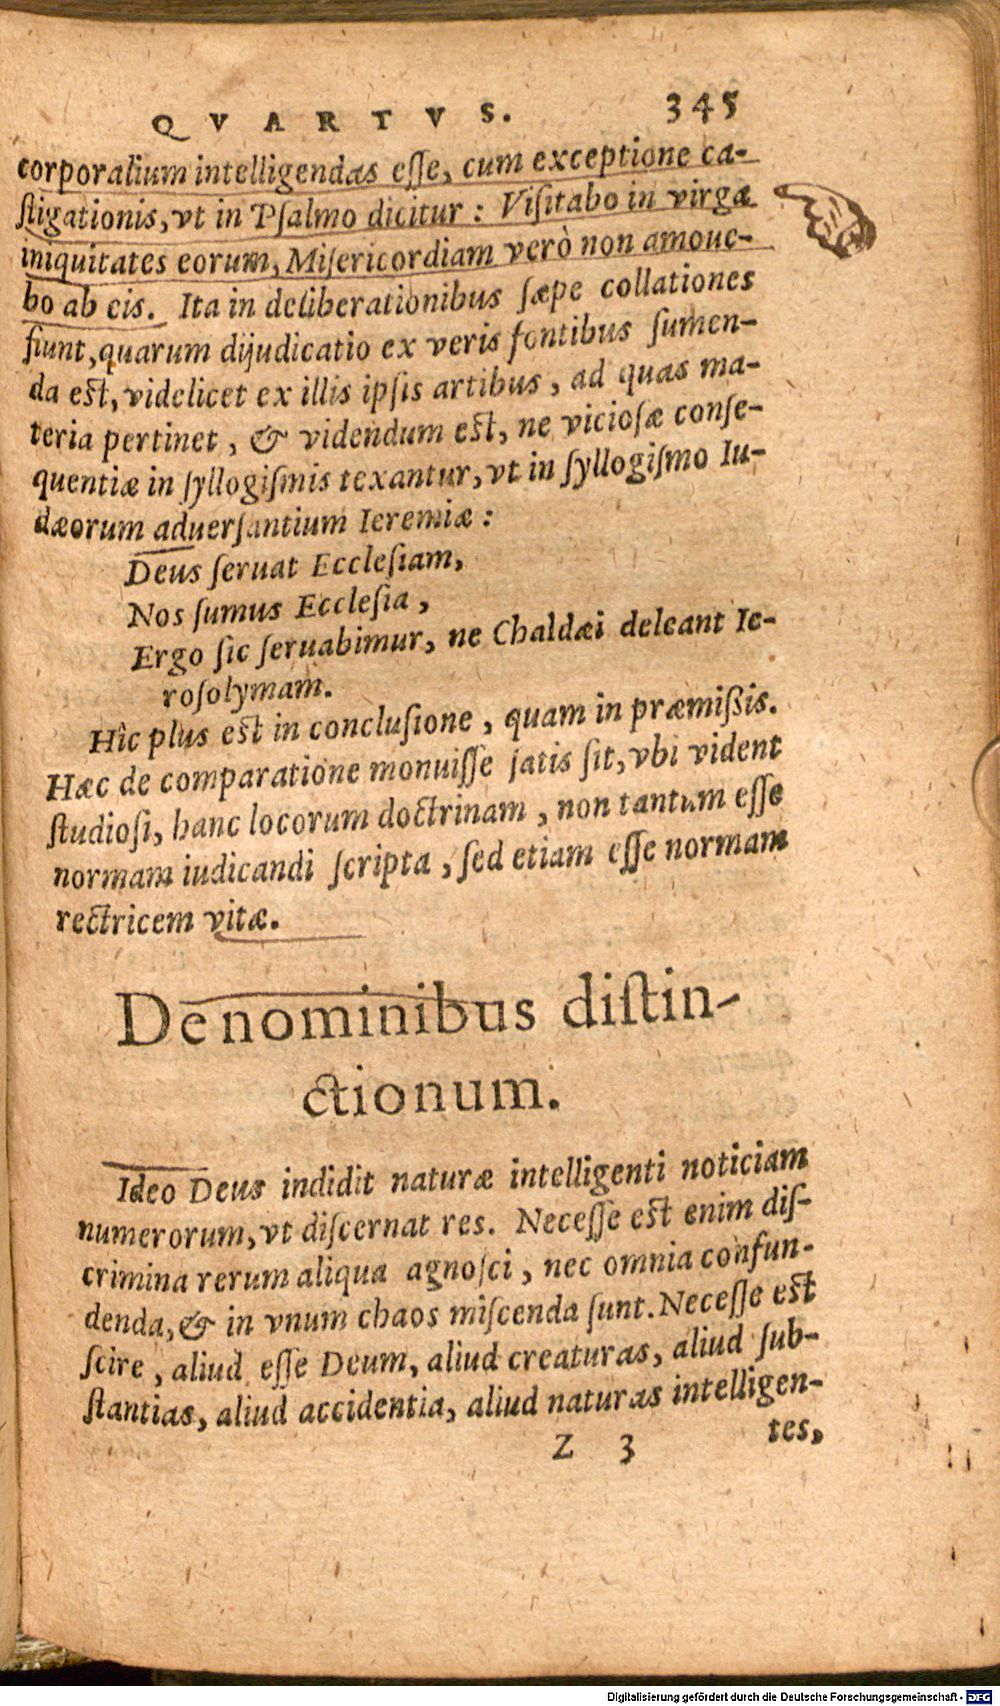 QVARTVS. 345
corporalium intelligendas eſſe, cum exceptione ca-
ſtigationis, vt in Pſalmo dicitur: Viſitabo in virga
iniquitates eorum, Miſericordiam verò non amoue-
bo ab eis. Ita in deliberationibus ſæpe collationes
fiunt, quarum dijudicatio ex veris fontibus ſumen-
da eſt, videlicet ex illis ipſis artibus, ad quas ma-
teria pertinet, & videndum eſt, ne vicioſæ conſe-
quentiæ in ſyllogiſmis texantur, vt in ſyllogiſmo Iu-
dæorum aduerſantium Ieremiæ:
Deus ſeruat Eccleſiam,
Nos ſumus Eccleſia,
Ergo ſic ſeruabimur, ne Chaldæi deleant Ie-
roſolymam.
Hîc plus eſt in concluſione, quam in præmiſsis.
Hæc de comparatione monuiſſe ſatis ſit, vbi vident
ſtudioſi, hanc locorum doctrinam, non tantum eſſe
normam iudicandi ſcripta, ſed etiam eſſe normam
rectricem vitæ.
De nominibus diſtin-
ctionum.
Ideo Deus indidit naturæ intelligenti noticiam
numerorum, vt diſcernat res. Neceſſe eſt enim diſ-
crimina rerum aliqua agnoſci, nec omnia confun-
denda, & in vnum chaos miſcenda ſunt. Neceſſe eſt
ſcire, aliud eſſe Deum, aliud creaturas, aliud ſub-
ſtantias, aliud accidentia, aliud naturas intelligen-
Z 3 tes,
Digitalisierung gefördert durch die Deutsche Forschungsgemeinschaft - DFG